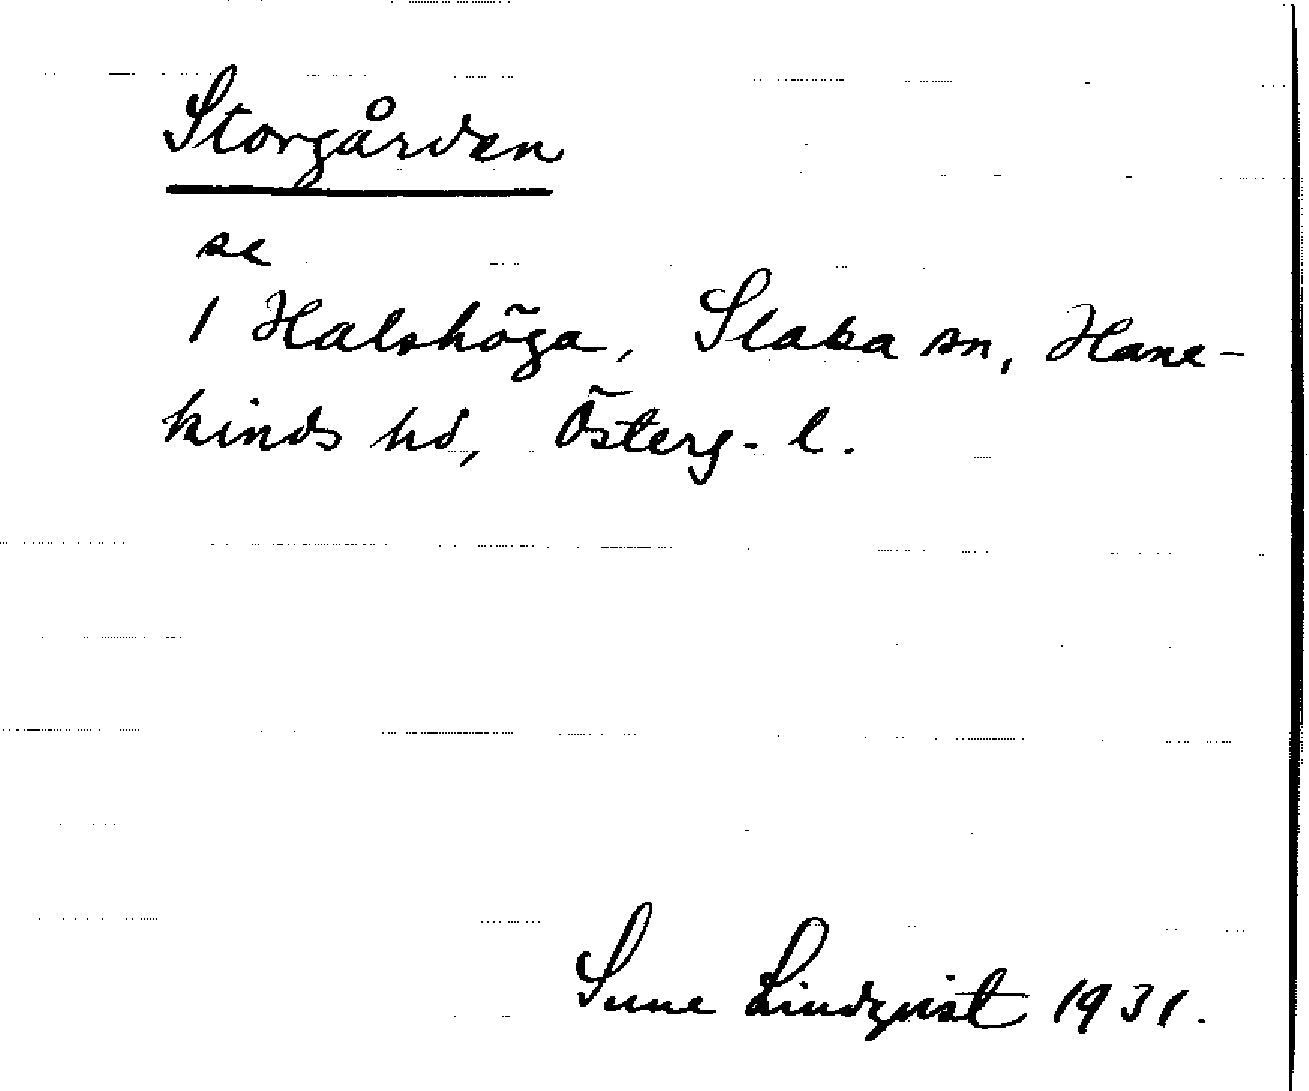 Storgården
se
1 Halshöga, Slaka sn, Hane-
kinds hd, Österg. l.
Sune Lindqvist 1931.